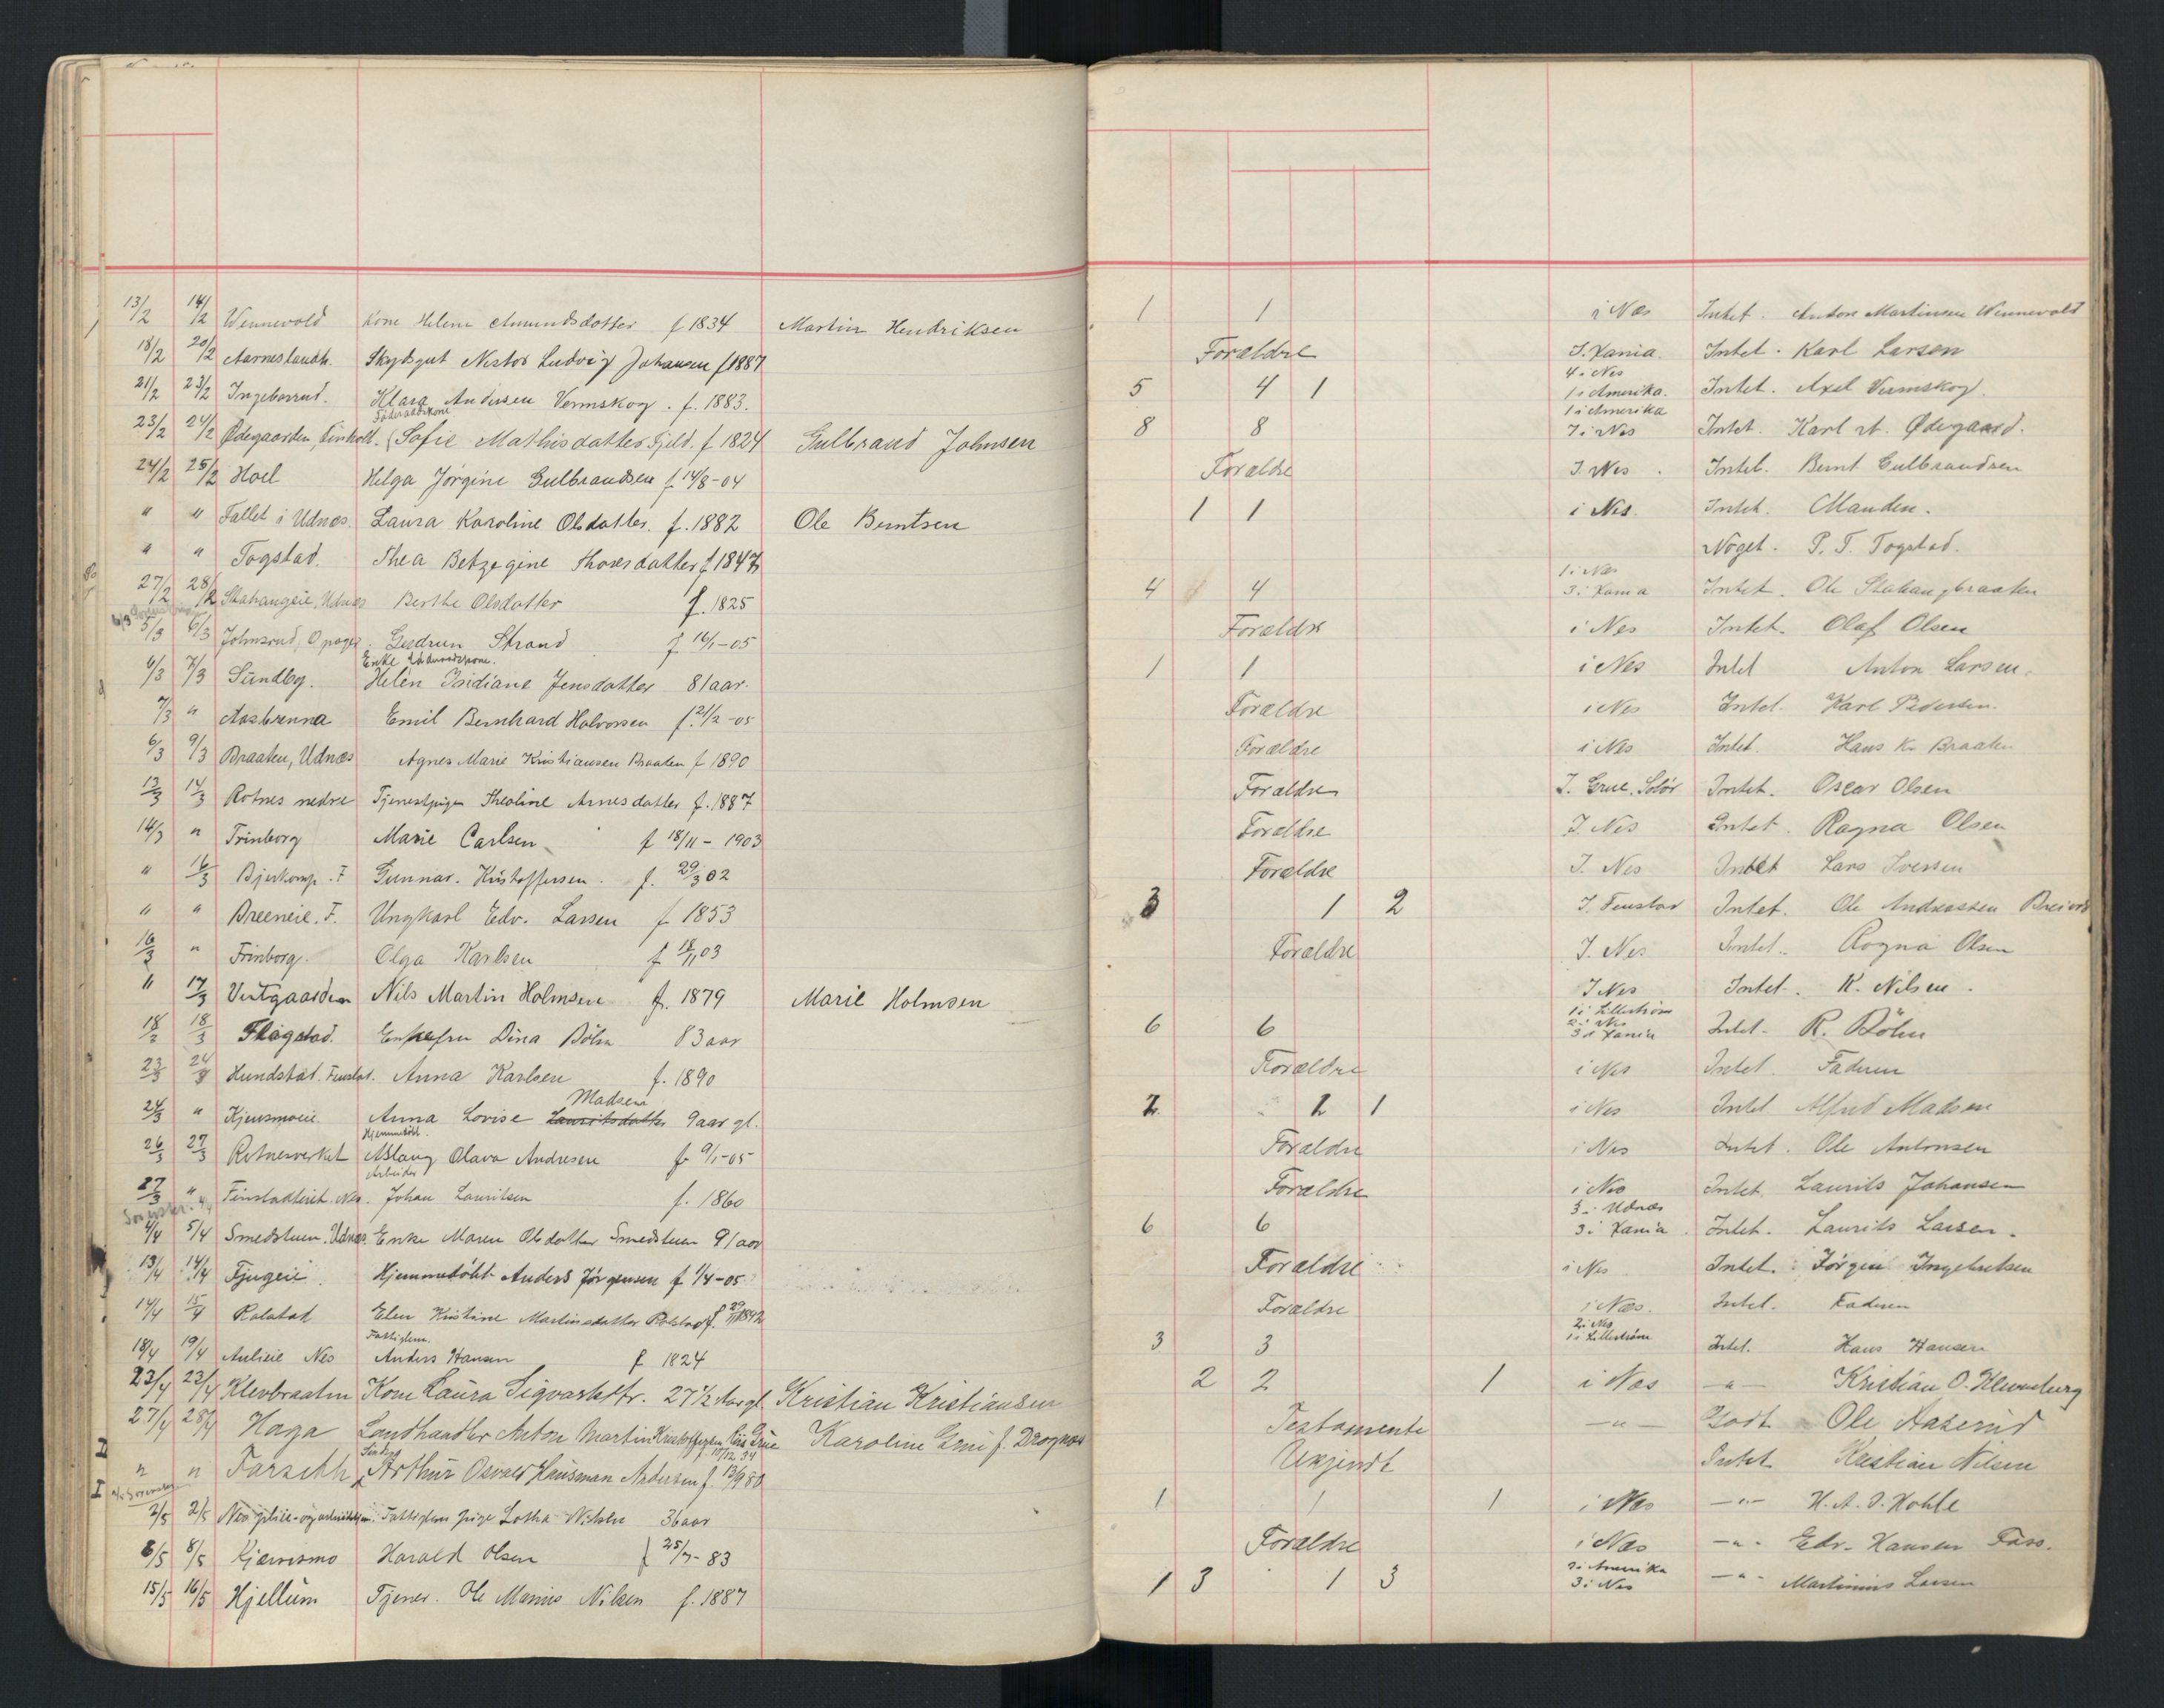 13/2 14/2 Wennevold Kone Helene Amundsdatter f 1834 Martin Hendriksen 1 1 i Næs Intet. Anton Martinsen Wennevold
18/2 20/2 Aarneslandh. Skydsgut Nestor Ludvig Johansen f 1887 Forældre I. Xania. Intet. Karl Larsen
4 i Nes
21/2 23/2 Ingeborrud. Klara Andersen Vermskog. f. 1883. 5 4 1 1 i Amerika. Intet. Axel Vermskog.
Føderaadskone 1 i Amerika
23/2 24/2 Ødegaarden, Finholt. Sofie Mathisdatter Fjeld. f 1824 Gulbrand Johnsen 8 8 7 i Nes Intet. Karl A. Ødegaard.
24/2 25/2 Hoel Helga Jørgine Gulbrandsen f 14/8-04 Forældre I Nes. Intet. Bernt Gulbrandsen
" " Fallet i Udnæs. Laura Karoline Olsdatter. f. 1882 Ole Berntsen 1 1 i Nes. Intet. Manden.
" " Togstad. Thea Betzegine Thoresdatter f 1847 Noget. P. T. Togstad.
1 i Nes
27/2 28/2 Udnæs Berthe Olsdatter f. 1825 4 4 3 i Xania Intet. Ole Stahaugbraaten
5/3 6/3 Johnsrud, Opager. Gudrun Strand f 16/1-05 Forældre i Nes Intet. Olaf Olsen
Enke
6/3 7/3 Sundby. Helen Jensdatter 81 aar. 1 1 i Nes Intet Anton Larsen.
7/3 " Aasbrenna Emil Bernhard Halvorsen f. 21/2-05 Forældre i Nes Intet. Karl Pedersen.
6/3 9/3 Braaten, Udnæs Agnes Marie Kristiansen Braaten f 1890 Forældre i Nes Intet. Hans Kr. Braaten
13/3 14/3 Rotnes nedre Tjenestpigen Theoline Arnesdatter f. 1887 Forældre I. Grue. Solør Intet. Oscar Olsen
14/3 " Frinborg Marie Carlsen f 18/11-1903 Forældre I. Nes Intet. Ragna Olsen
" 16/3 Bjerkomp. F Gunnar. Kristoffersen. f. 29/3 02 Forældre I. Nes Intet Lars Iversen
" " Breeneie. F. Ungkarl Edv. Larsen f 1853 3 1 2 I. Fenstad Intet. Ole Andreassen
16/3 " Frinborg. Olga Karlsen f 18/11 03 Forældre I. Nes Intet. Ragna Olsen
" 17/3 Vestgaarden Nils Martin Holmsen f. 1879 Marie Holmsen I Nes Intet. K. Nilsen.
1 i Lillestrøm
2 i Nes
18/3 18/3 Flagstad. Enkefru Dina Bölm 83 aar 6 6 3 i Xania Intet. R. Bölm
23/3 24/3 Hundstat. Fenstat. Anna Karlsen f. 1890 Forældre i Nes Intet. Faderen
Madsen
24/3 " Kjensmoeie Anna Lovise Lauritsdatter 9 aar gl. 2 1 1 i Nes Intet Alfred Madsen
Hjemmedöbt.
26/3 27/3 Rotnesverket Aslaug Olava Andresen f 9/1-05 Forældre i Nes Intet. Ole Antonsen
Arbeider
27/3 " Finstadteiet. Nes. Johan Lauritsen f. 1860 Forældre i Nes Intet. Laurits Johansen
3 i Udnæs
4/4 5/4 Smedstuen. Udnæs. Enke Maren Olsdatter Smedstuen 91 aar 6 6 3 i Xania. Intet. Laurits Larsen.
13/4 14/4 Fjugeie. Hjemmedöbt Anders Jørgensen f 1/4-05 Forældre i Nes Intet. Jørgen Ingebretsen
14/4 15/4 Rolstad Elen Kristine Martinsdatter Rolstad f. Forældre i Næs. Intet. Faderen
Fattiglem. 2 i Nes
18/4 19/4 Aulieie Nes Anders Hansen f 1824 3 3 1 i Lillestrøm Intet. Hans Hansen
23/4 23/4 Klevbraaten Kone Laura Sigvartsdtr. 27 1/2 Aar gl. Kristian Kristiansen 2 2 1 i Næs -"- Kristian O. Klevenberg
27/4 28/4 Haga Landhandler Anton Martin Karoline Grue f. Drognæs Testamente -"- Godt Ole Aaserud
" " Farseth Arthur Osvald Hausman Andersen f. 13/9 80 Ukjendt Intet Kristian Nilsen
2/5 2/5 Fattiglem pige Lotha Nilsen 36 aar 1 1 1 i Næs -"- H. A. O. Kohle
6/5 8/5 Kjærnsmo Harald Olsen f 25/7-83 Forældre i Næs -"- Edv. Hansen Foss.
2 i Amerika
15/5 16/5 Hjellum Tjener. Ole Marius Nilsen f. 1887 1 3 1 3 3 i Nes -"- Martinius Larsen